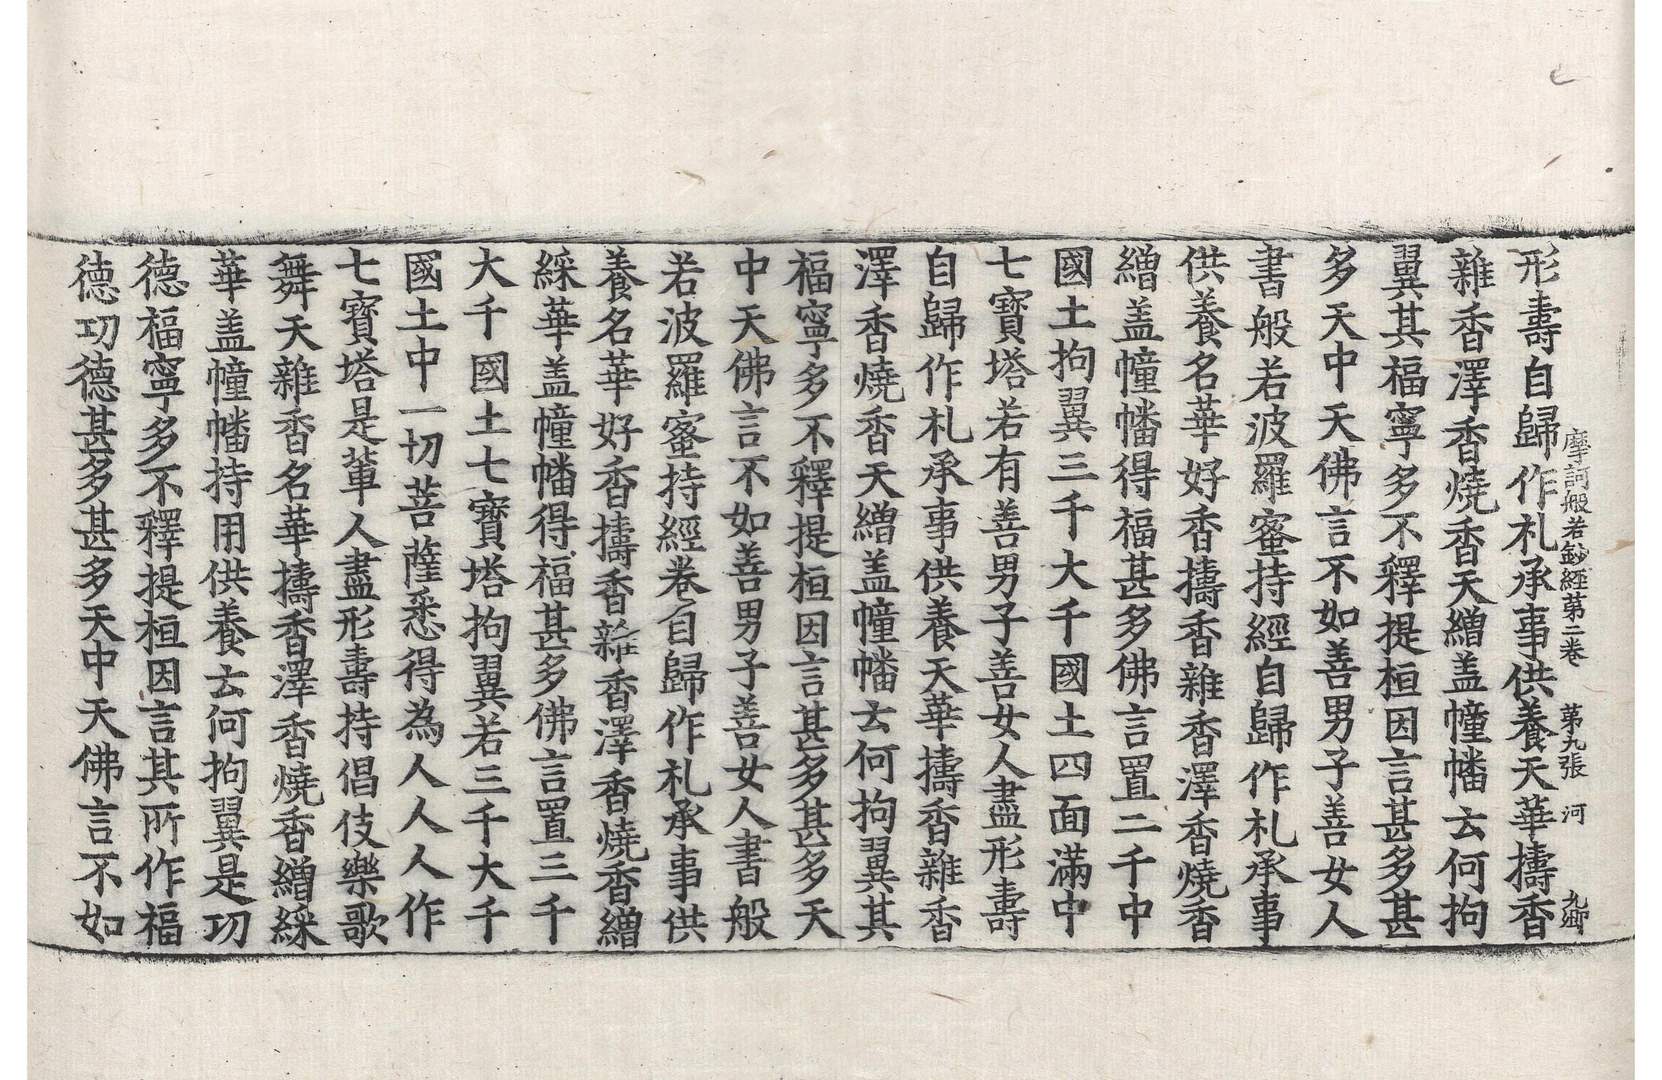 摩訶般若鈔經第二卷　第九張　河　九
形壽自歸作礼承事供養天華擣香
雜香澤香燒香天繒盖幢幡云何拘
翼其福寧多不釋提桓因言甚多甚
多天中天佛言不如善男子善女人
書般若波羅蜜持經自歸作礼承事
供養名華好香擣香雜香澤香燒香
繒盖幢幡得福甚多佛言置二千中
國土拘翼三千大千國土四面滿中
七寶塔若有善男子善女人盡形壽
自歸作礼承事供養天華擣香雜香
澤香燒香天繒盖幢幡云何拘翼其
福寧多不釋提桓因言甚多甚多天
中天佛言不如善男子善女人書般
若波羅蜜持經卷自歸作礼承事供
養名華好香擣香雜香澤香燒香繒
綵華盖幢幡得福甚多佛言置三千
大千國土七寶塔拘翼若三千大千
國土中一切菩薩悉得為人人人作
七寶塔是輩人盡形壽持倡伎樂歌
舞天雜香名華擣香澤香燒香繒綵
華盖幢幡持用供養云何拘翼是功
德福寧多不釋提桓因言其所作福
德功德甚多甚多天中天佛言不如